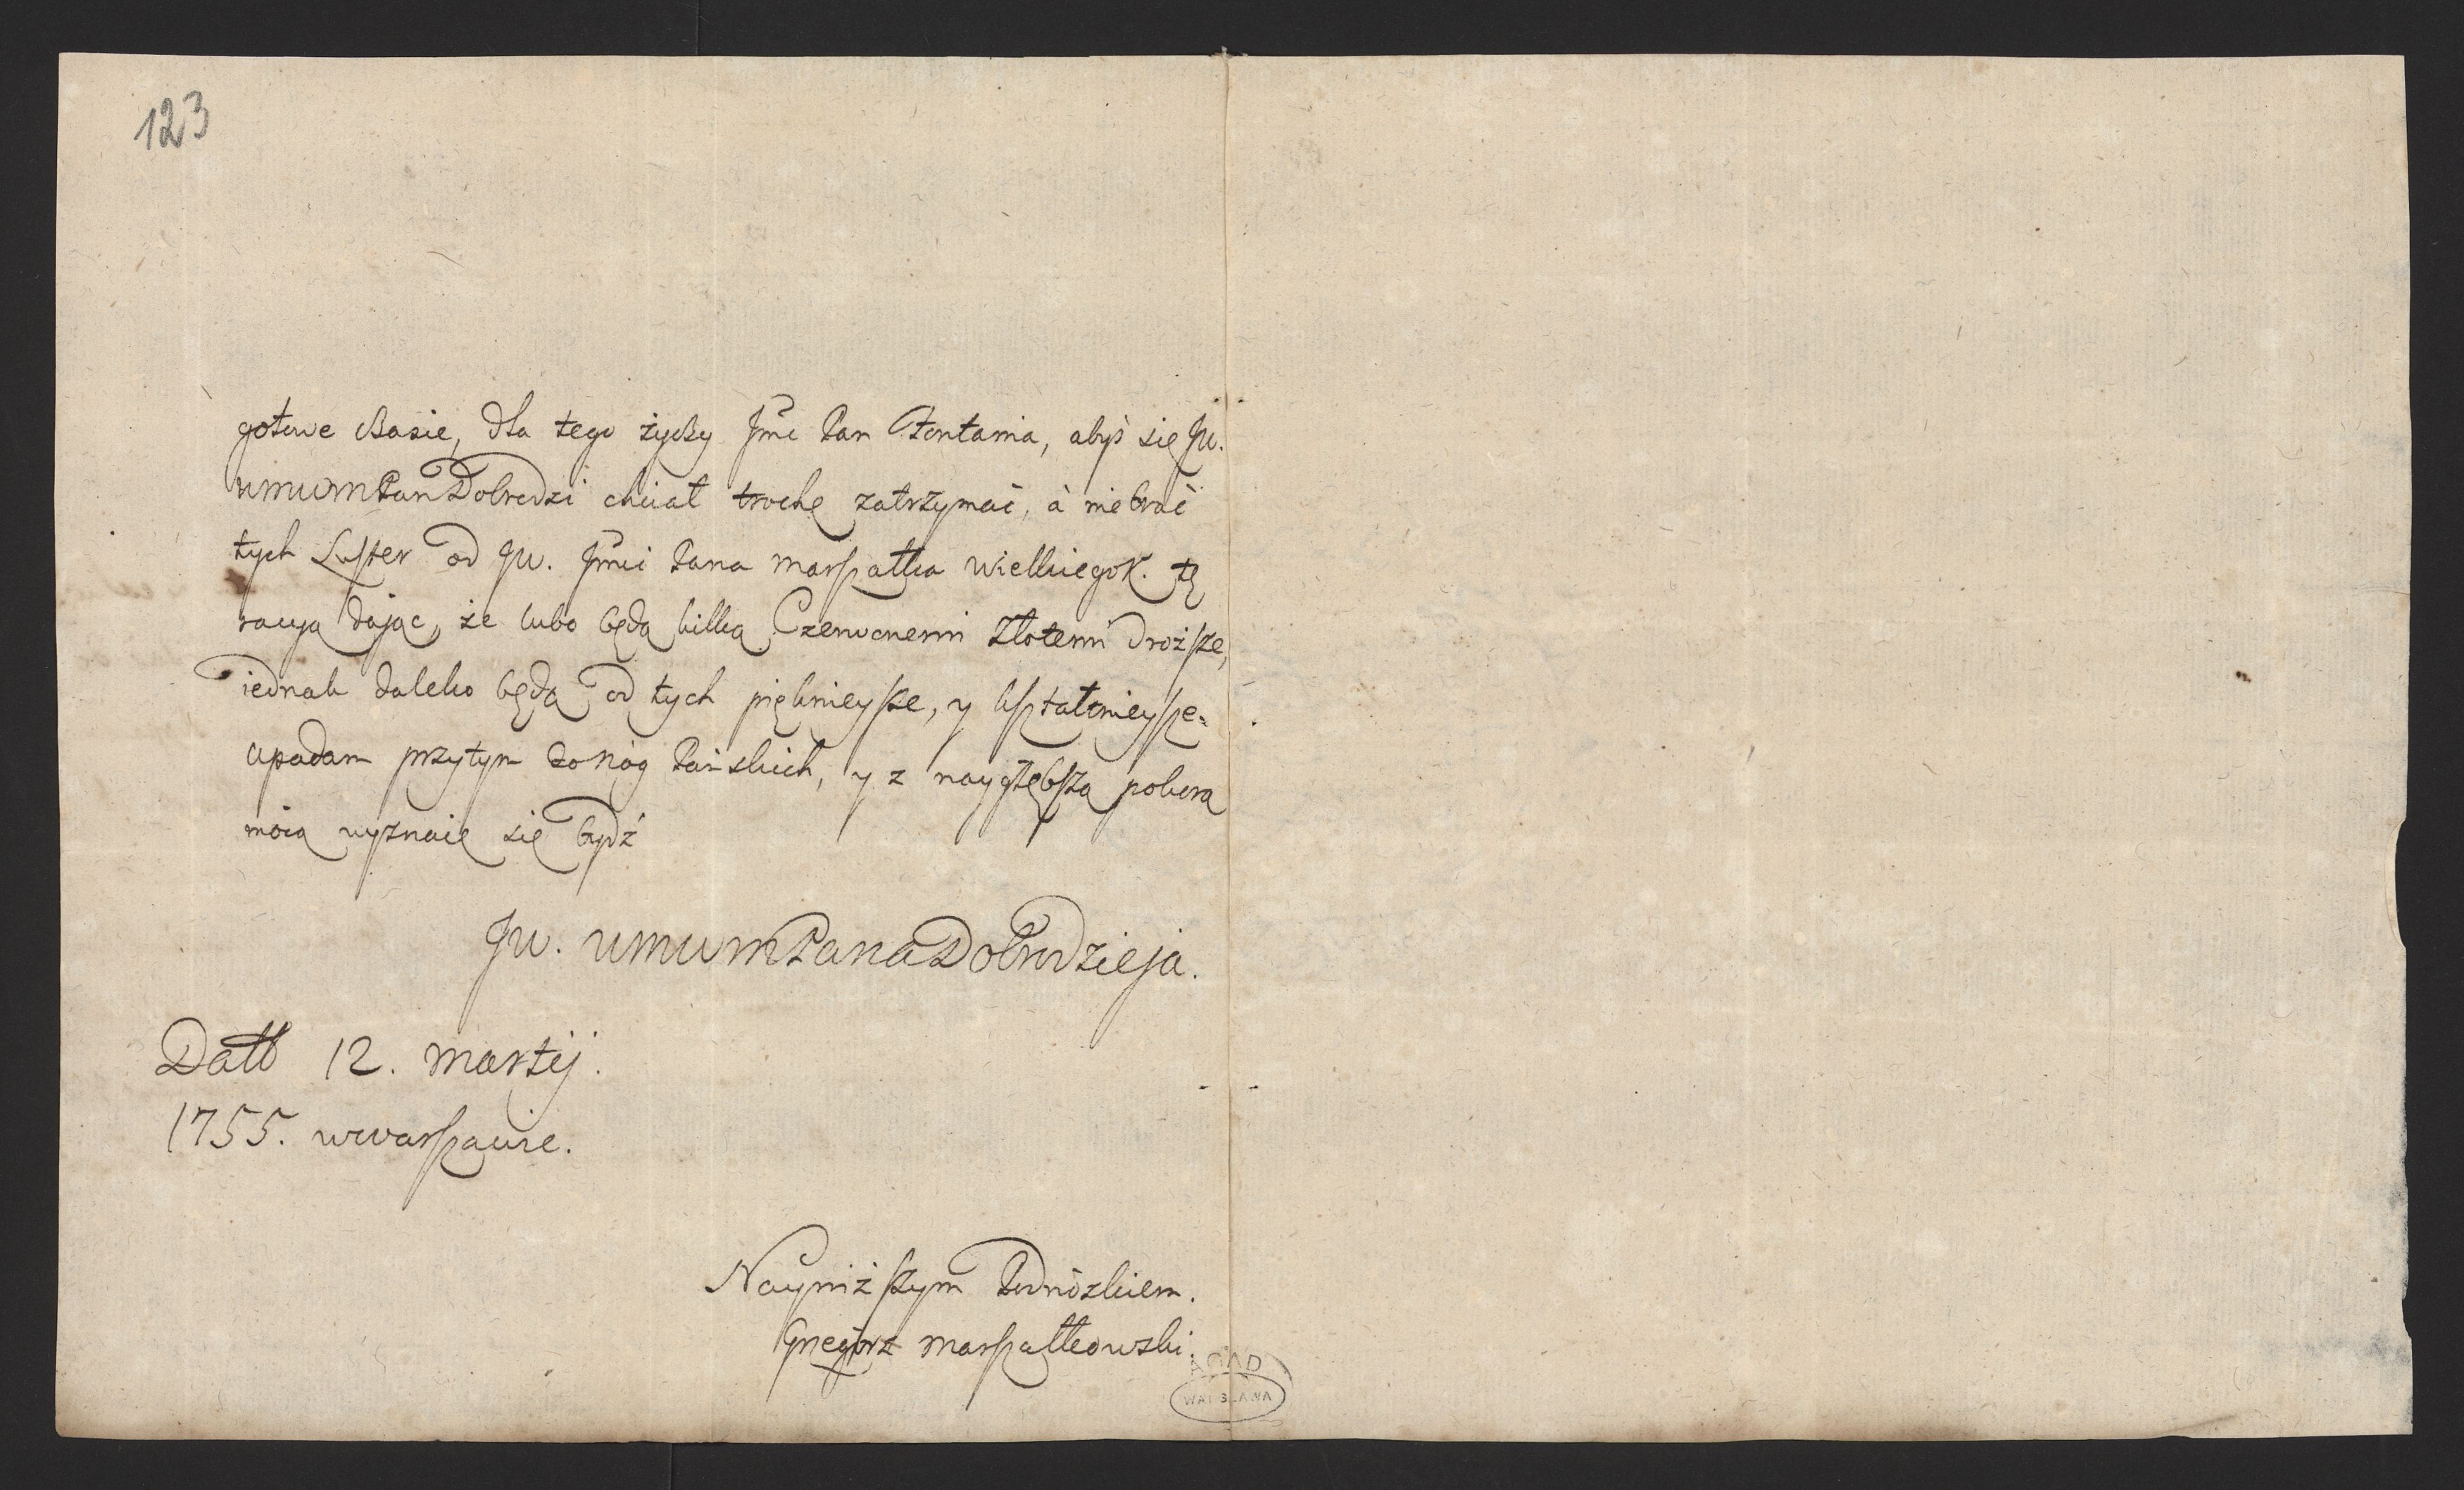 123
gotowe Basie, dla tego życzy Jmć Pan Fontania, abyś się JW.
WMWMPan Dobrodzi chciał trochę zatrzymać, à nie brać
tych Luster od JW. Jmci Pana Marszałka Wielkiego K. tę
racyą dając, że lubo będą kilką Czerwonemi Złotemi droższe,
iednak daleko będą od tych pięknieysze, y kształtnieysze.
Upadam przytym do nóg Pańskich, y z naygłębszą pokorą
moią wyznaię się bydź
JW. WMWMPana Dobrodzieja.
Datt 12. Martij.
1755. w Warszawie.
Nayniższym Podnóżkiem.
Grzegórz Marszałkowski.
AGAD
WARSZAWA